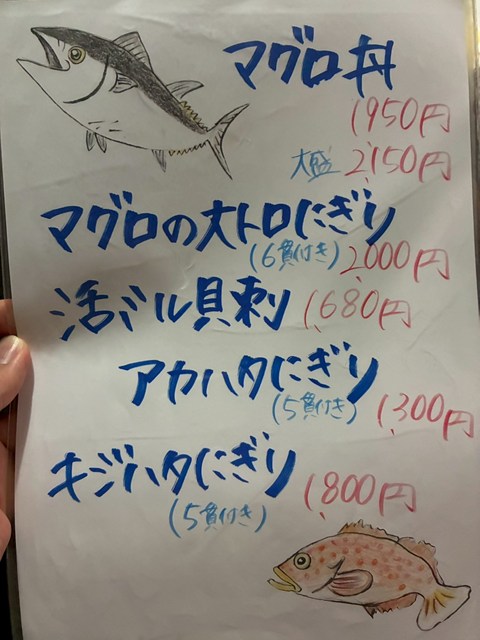 マグロ丼
1,950円
大盛 2,150円
マグロの大トロにぎり
(6貫付き) 2,000円
活ミル貝刺 1,680円
アカハタにぎり
(5貫付き) 1,300円
キジハタにぎり
(5貫付き) 1,800円